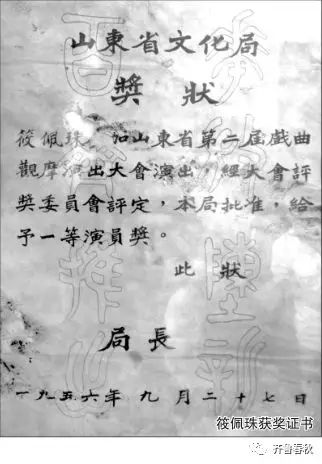 山東省文化局
獎狀
筱佩珠 加山東省第二屆戲曲
觀摩演出大會演出，經大會評
獎委員會評定，本局批准，給
予一等演員獎。
此狀
局長
一九五六年九月二十七日
百花齊放
推陳出新
筱佩珠获奖证书
齐鲁春秋